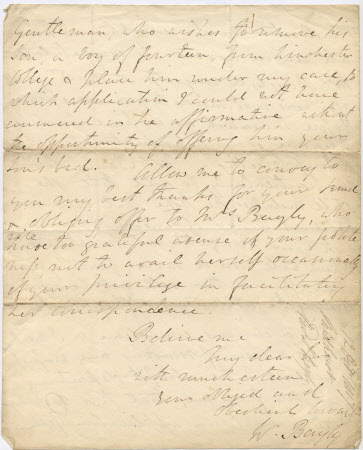 Gentleman, who wishes to remove his
son, a boy of fourteen, from Winchester
College & place him under my care, to
which application I could not have
answered in the affirmative without
the opportunity of offering him your
son's bed. Allow me to convey to
you my best thanks for your kind
& obliging offer to Mrs Bayly, who
has too grateful a sense of your polite
ness not to avail herself occasionally
of your privilege in facilitating
her correspondence.
Believe me
My dear Sir
with much esteem
Your obliged and
obedient servant
W. Bayly